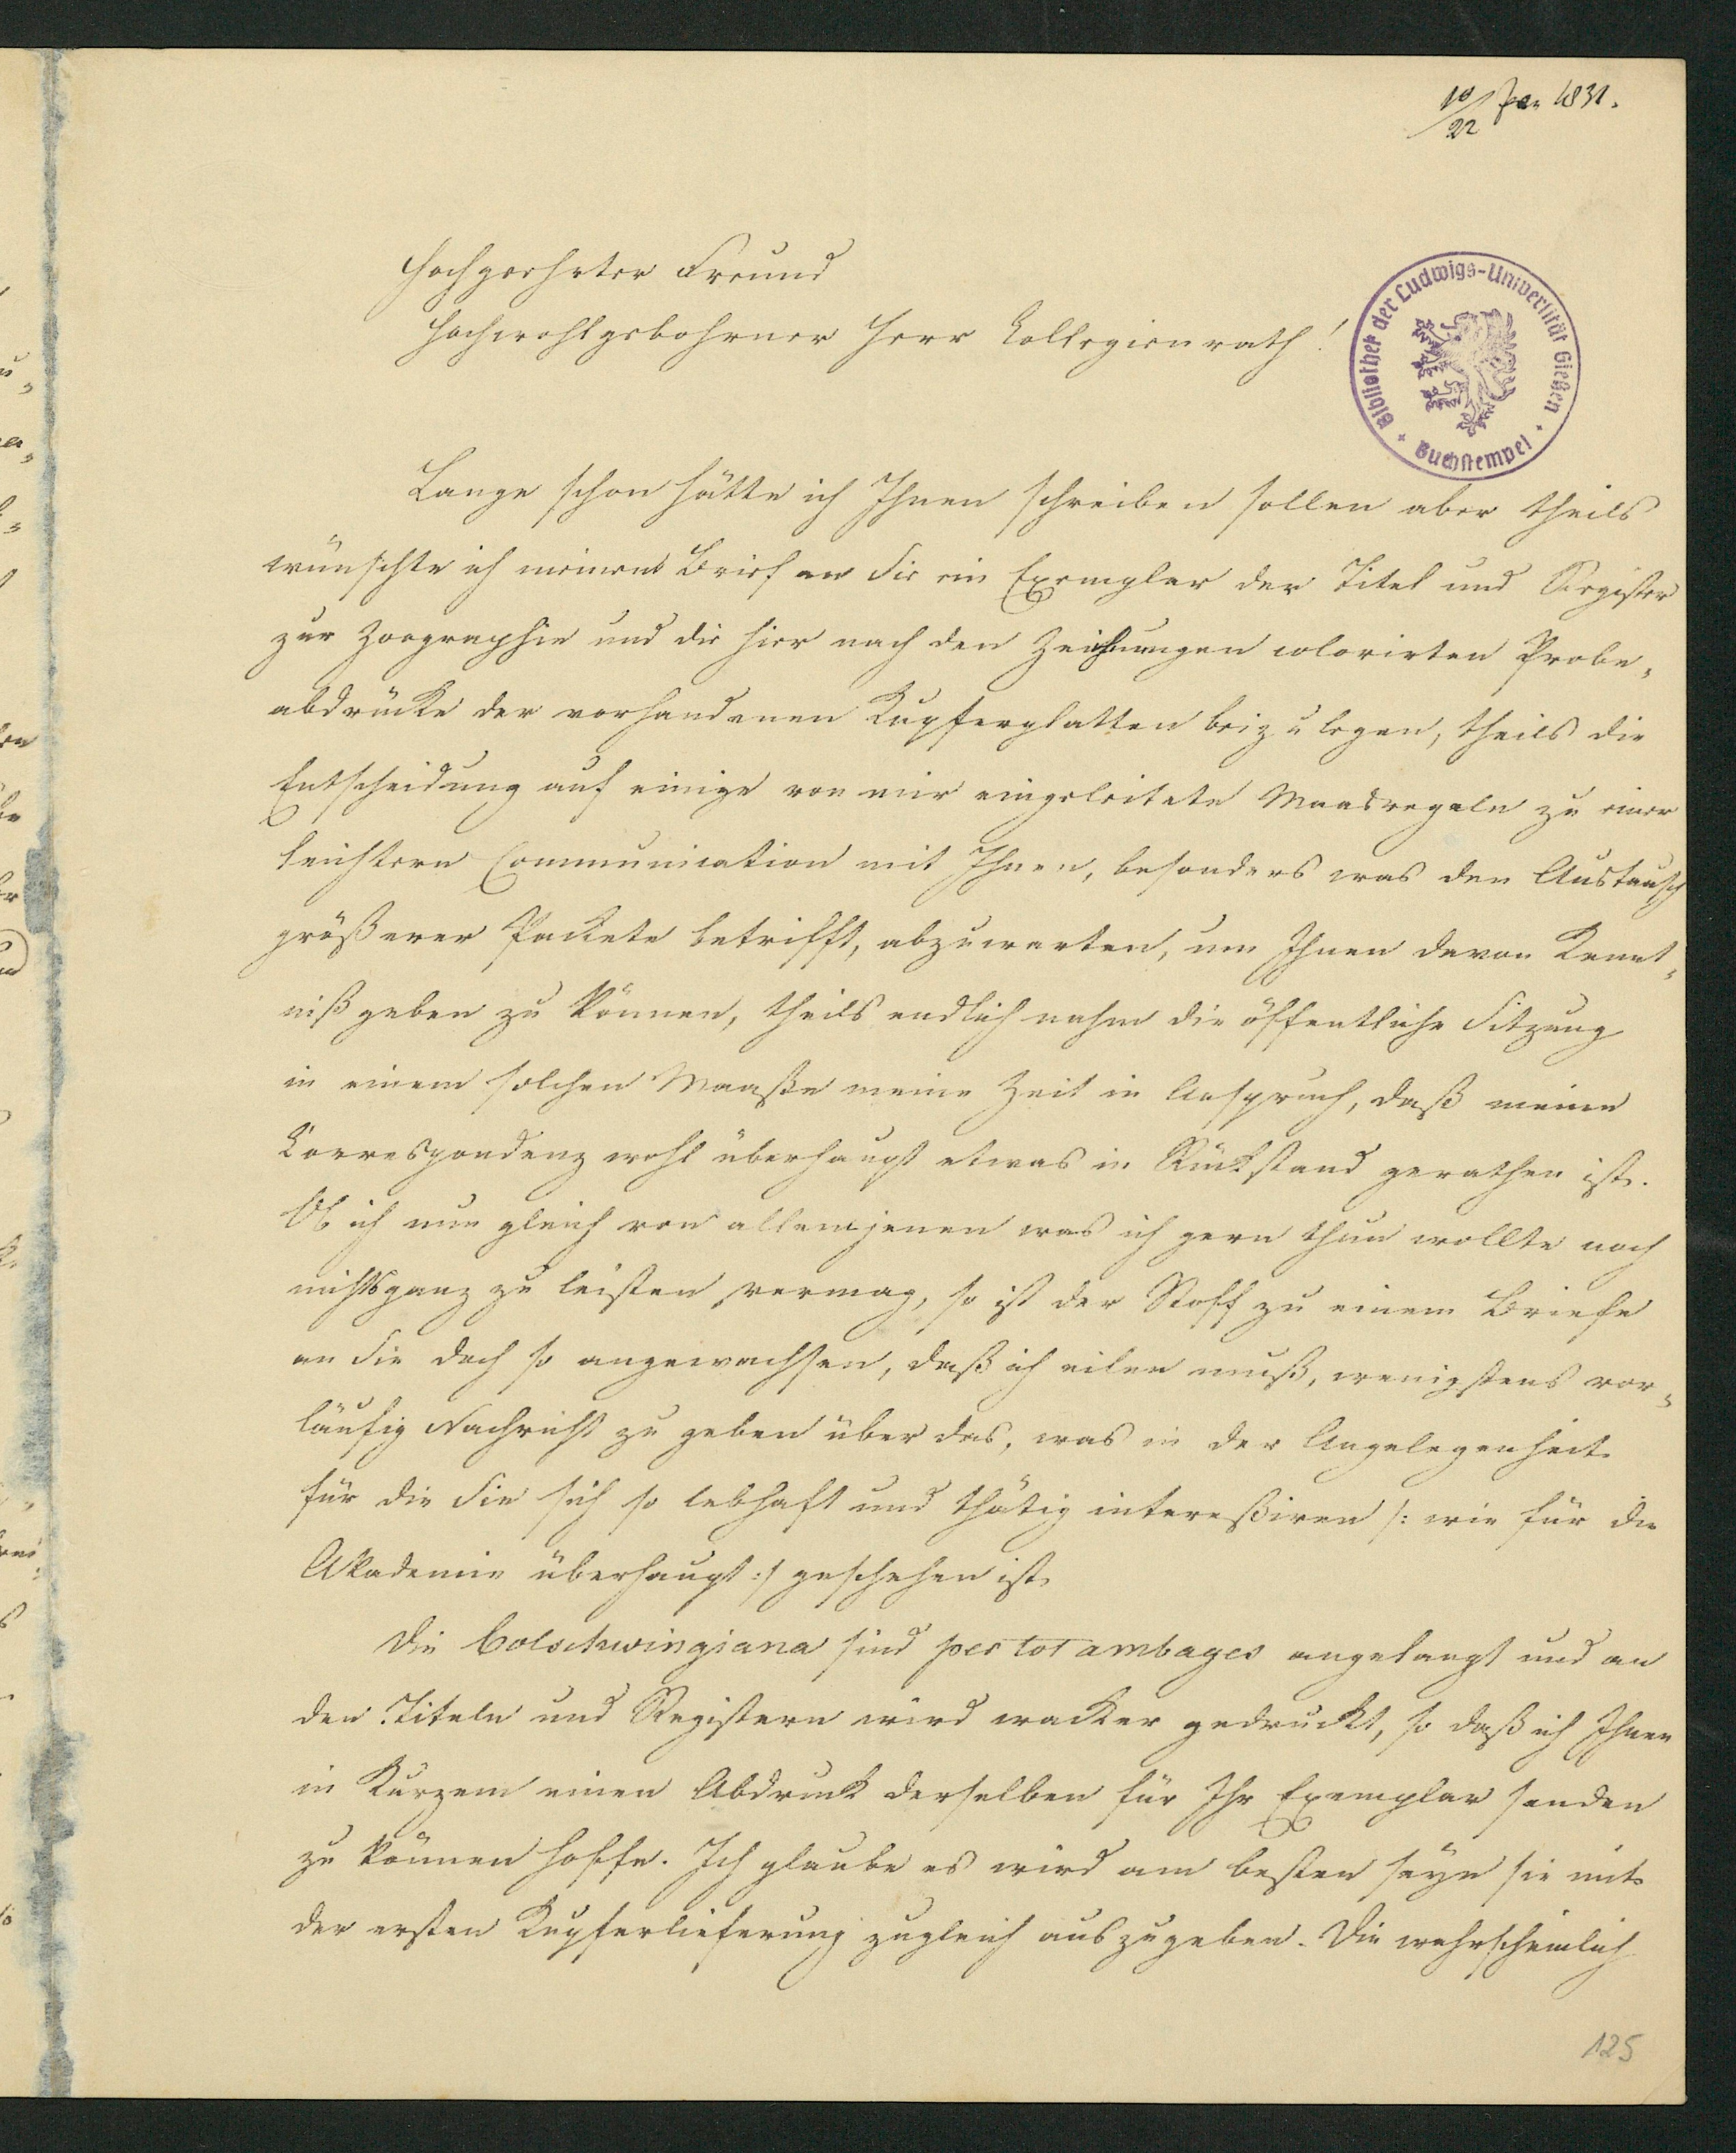 10/22 Jan 1831.
Hochgeehrter Freund
Hochwohlgebohrner Herr Collegienrath!
Bibliothek der Ludwigs-Universität Gießen
+ Buchstempel +
Lange schon hätte ich Ihnen schreiben sollen aber theils
wünschte ich meinem Brief an Sie ein Exemplar der Titel und Register
zur Zoographie und die hier nach den Zeichnungen colorirten Probe-
abdrücke der vorhandenen Kupferplatten beizulegen, theils die
Entscheidung auf einige von mir eingeleitete Maasregeln zu einer
leichtern Communication mit Ihnen, besonders was den Austausch
größerer Packete betrifft, abzuwarten, um Ihnen davon Kennt-
niß geben zu können, theils endlich nahm die öffentliche Sitzung
in einem solchen Maaße meine Zeit in Anspruch, daß meine
Correspondenz wohl überhaupt etwas in Rückstand gerathen ist.
Ob ich nun gleich von allemjenen was ich gern thun wollte noch
nichts ganz zu leisten vermag, so ist der Stoff zu einem Briefe
an Sie doch so angewachsen, daß ich eilen muß, wenigstens vor-
läufig Nachricht zu geben über das, was in der Angelegenheit
für die Sie sich so lebhaft und thätig intereßiren /: wie für die
Akademie überhaupt :/ geschehen ist.
Die Bolschwingiana sind per tot ambages angelangt und an
den Titeln und Registern wird wacker gedruckt, so daß ich Ihnen
in Kurzem einen Abdruck derselben für Ihr Exemplar senden
zu können hoffe. Ich glaube es wird am besten seyn sie mit
der ersten Kupferlieferung zugleich auszugeben. Die wahrscheinlich
125